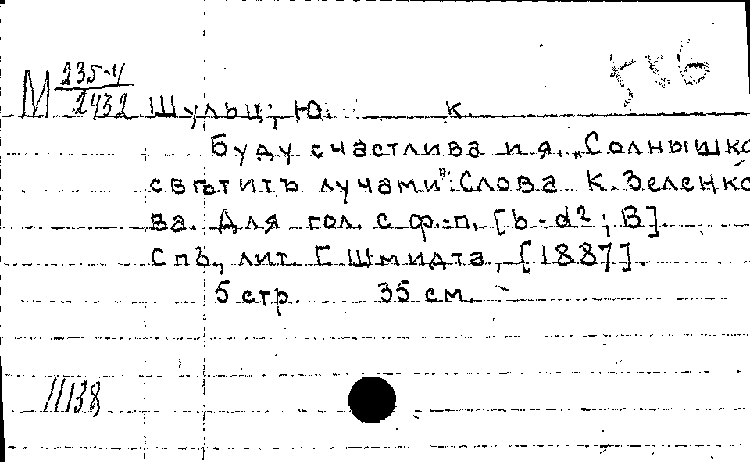 М 235-4/2432
586
Шульц, Ю. К.
Буду счастлива и я. „Солнышко
свѣтитъ лучами": Слова К. Зеленко
ва. Для гол. с ф.-п. [b-d²; B].
Спб., лит. Г. Шмидта, [1887].
5 стр. 35 см.
11138